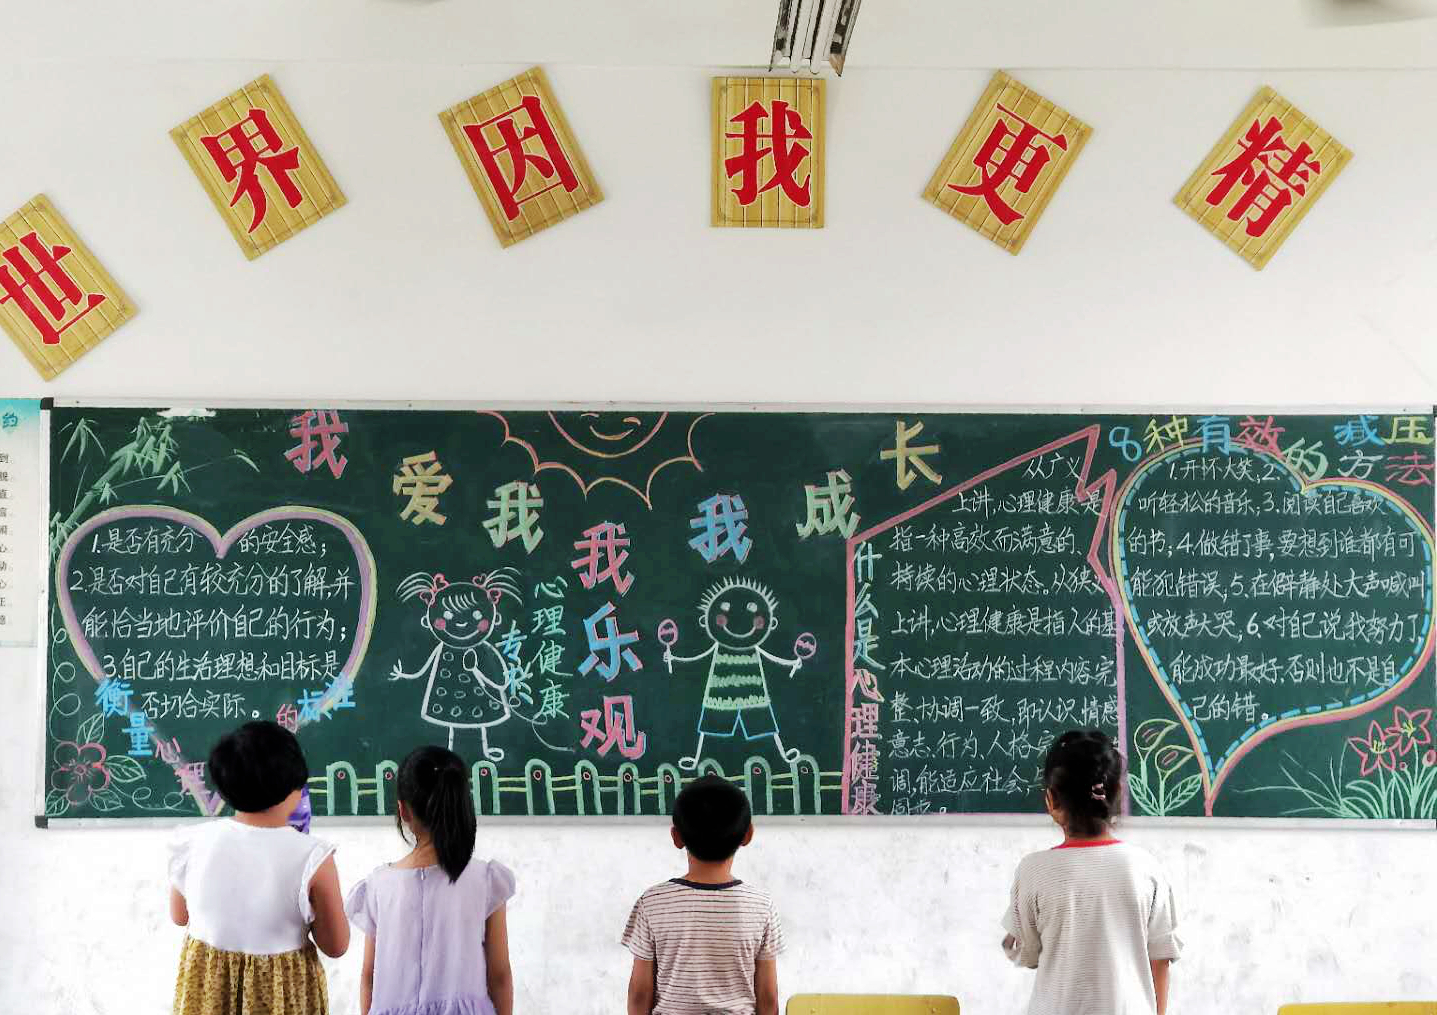 世界因我更精
我爱我 我成长
我乐观
心理健康
专栏
1.是否有充分的安全感;
2.是否对自己有较充分的了解,并
能恰当地评价自己的行为;
3.自己的生活理想和目标是
否切合实际。
衡量心理
的标准
什么是心理健康
从广义
上讲,心理健康是
指一种高效而满意的、
持续的心理状态。从狭义
上讲,心理健康是指人的基
本心理活动的过程内容完
整、协调一致,即认识、情感
意志、行为、人格完
调,能适应社会,与
8种有效减压
的方法
1.开怀大笑;2.
听轻松的音乐;3.阅读自己喜欢
的书;4.做错了事,要想到谁都有可
能犯错误;5.在僻静处大声喊叫
或放声大哭;6.对自己说我努力了
能成功最好,否则也不是自
己的错。